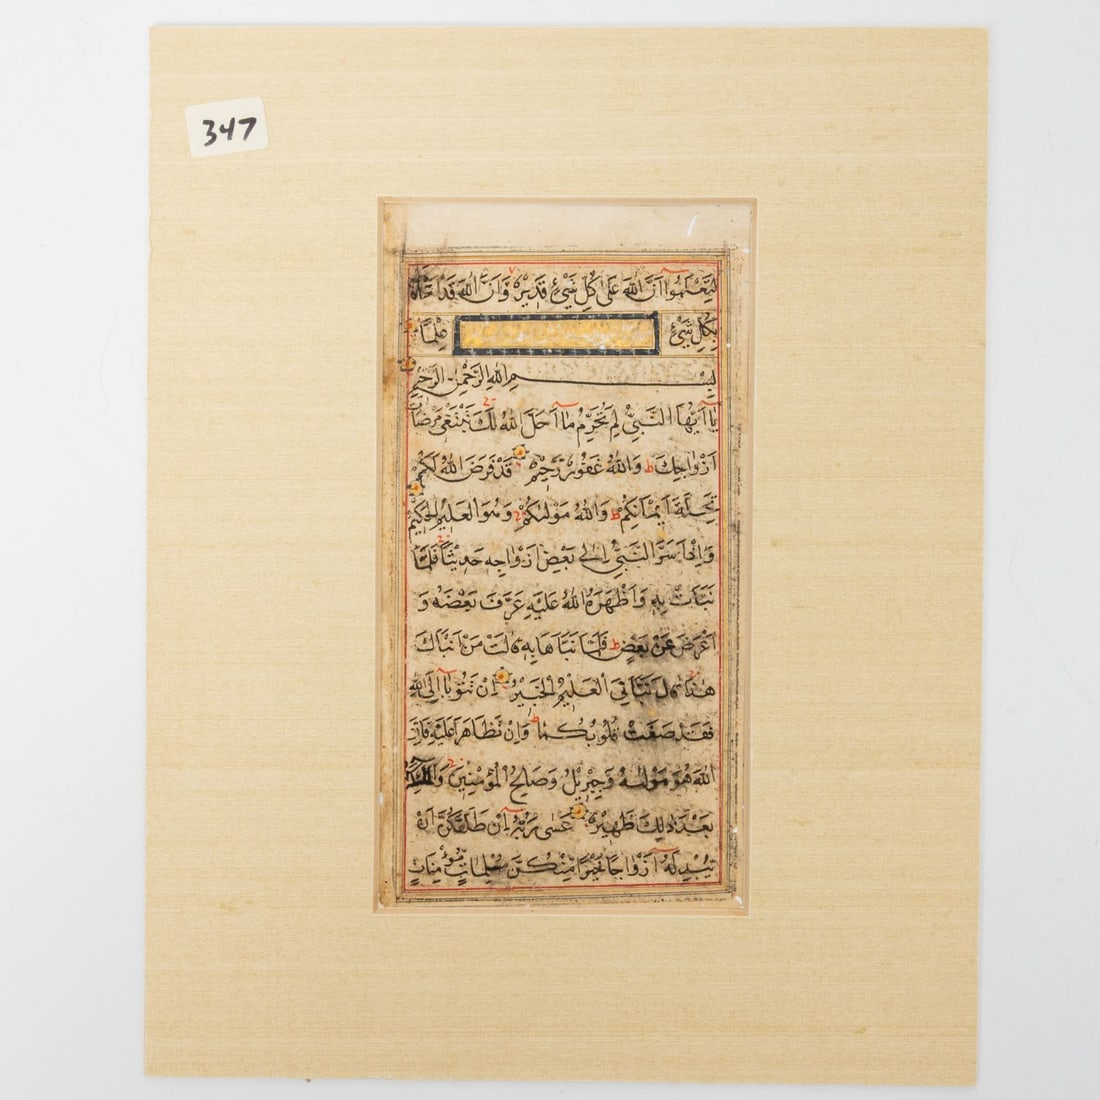 347
لِتَعْلَمُوا اَنَّ اللهَ عَلٰى كُلِّ شَيْءٍ قَدِيْرٌ وَاَنَّ اللهَ قَدْ اَحَاطَ
بِكُلِّ شَيْءٍ عِلْمًا
بِسْمِ اللهِ الرَّحْمٰنِ الرَّحِيْمِ
يَا اَيُّهَا النَّبِيُّ لِمَ تُحَرِّمُ مَا اَحَلَّ اللهُ لَكَ تَبْتَغِي مَرْضَاتَ
اَزْوَاجِكَ ط وَاللهُ غَفُوْرٌ رَّحِيْمٌ قَدْ فَرَضَ اللهُ لَكُمْ
تَحِلَّةَ اَيْمَانِكُمْ ط وَاللهُ مَوْلٰىكُمْ وَهُوَ الْعَلِيْمُ الْحَكِيْمُ
وَاِذْ اَسَرَّ النَّبِيُّ اِلٰى بَعْضِ اَزْوَاجِهٖ حَدِيْثًا فَلَمَّا
نَبَّاَتْ بِهٖ وَاَظْهَرَهُ اللهُ عَلَيْهِ عَرَّفَ بَعْضَهُ وَ
اَعْرَضَ عَنْ بَعْضٍ ط فَلَمَّا نَبَّاَهَا بِهٖ قَالَتْ مَنْ اَنْبَاَكَ
هٰذَا قَالَ نَبَّاَنِيَ الْعَلِيْمُ الْخَبِيْرُ اِنْ تَتُوْبَا اِلَى اللهِ
فَقَدْ صَغَتْ قُلُوْبُكُمَا ط وَاِنْ تَظَاهَرَا عَلَيْهِ فَاِنَّ
اللهَ هُوَ مَوْلٰىهُ وَجِبْرِيْلُ وَصَالِحُ الْمُؤْمِنِيْنَ وَالْمَلٰئِكَةُ
بَعْدَ ذٰلِكَ ظَهِيْرٌ عَسٰى رَبُّهٗ اِنْ طَلَّقَكُنَّ اَنْ
يُبْدِلَهٗ اَزْوَاجًا خَيْرًا مِّنْكُنَّ مُسْلِمَاتٍ مُّؤْمِنَاتٍ